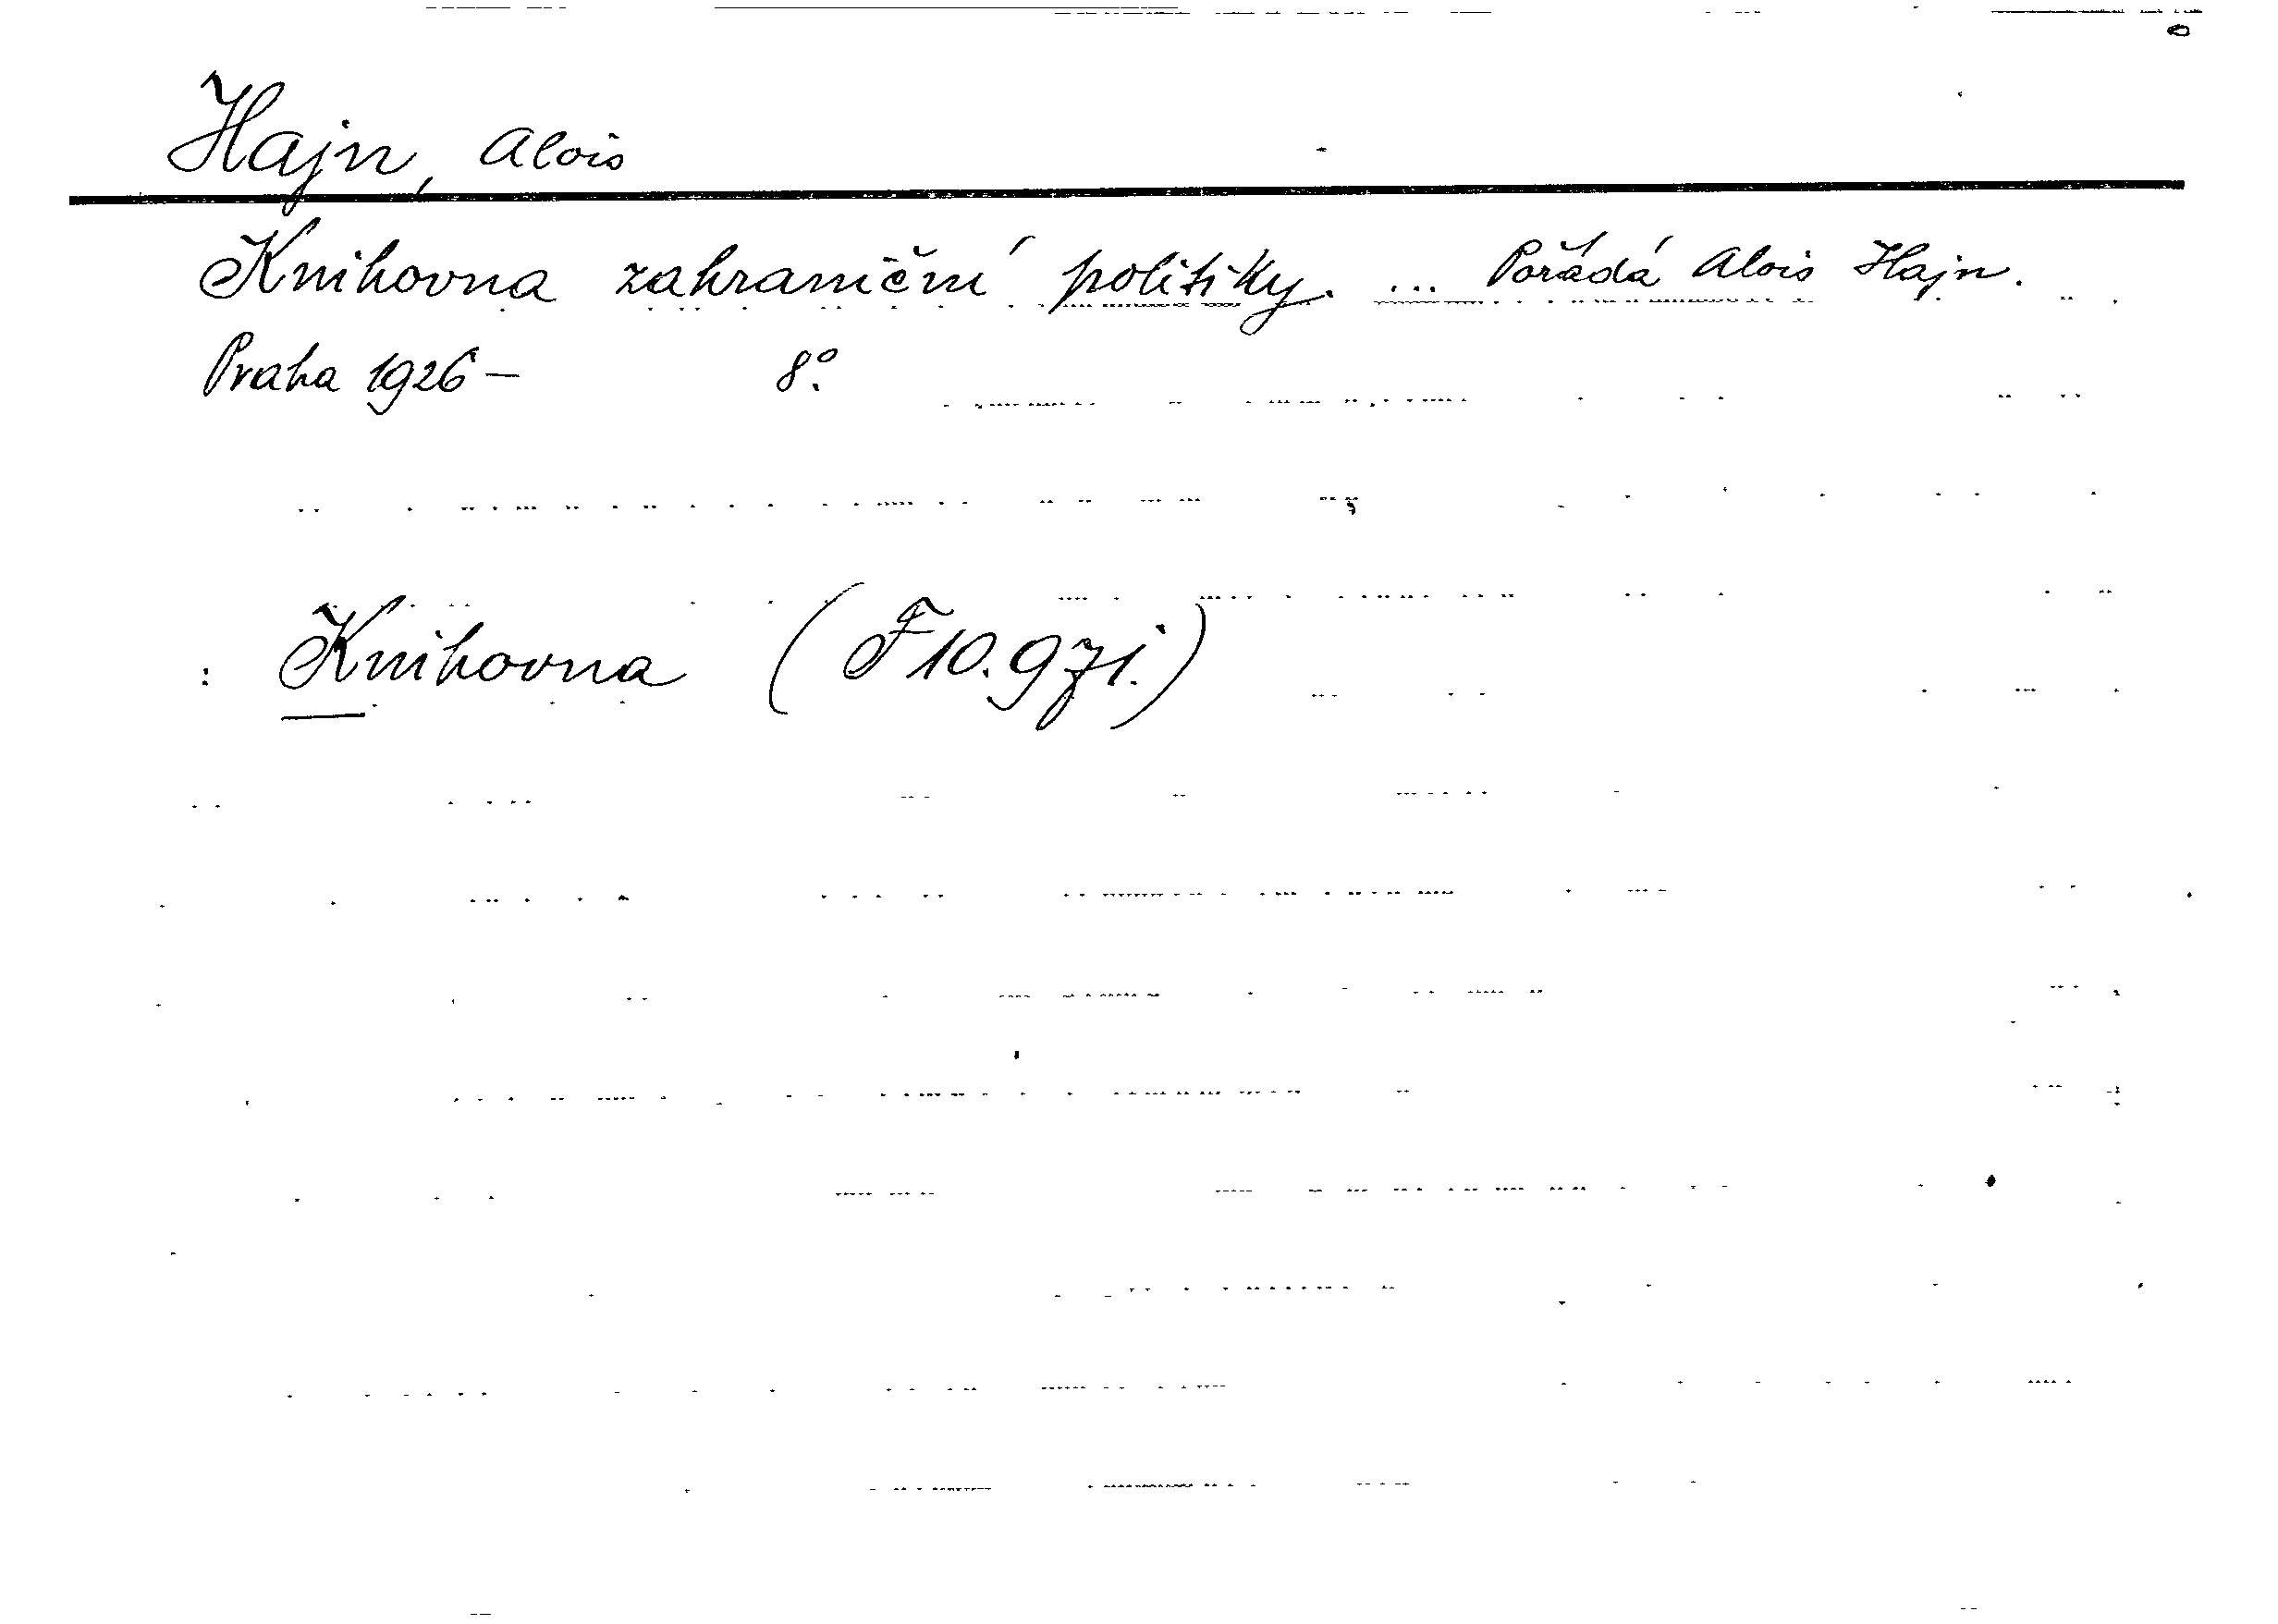 Hajn, Alois
Knihovna zahraniční politiky. ... Pořádá Alois Hajn.
Praha 1926 – 8°.
: Knihovna (F 10.971.)